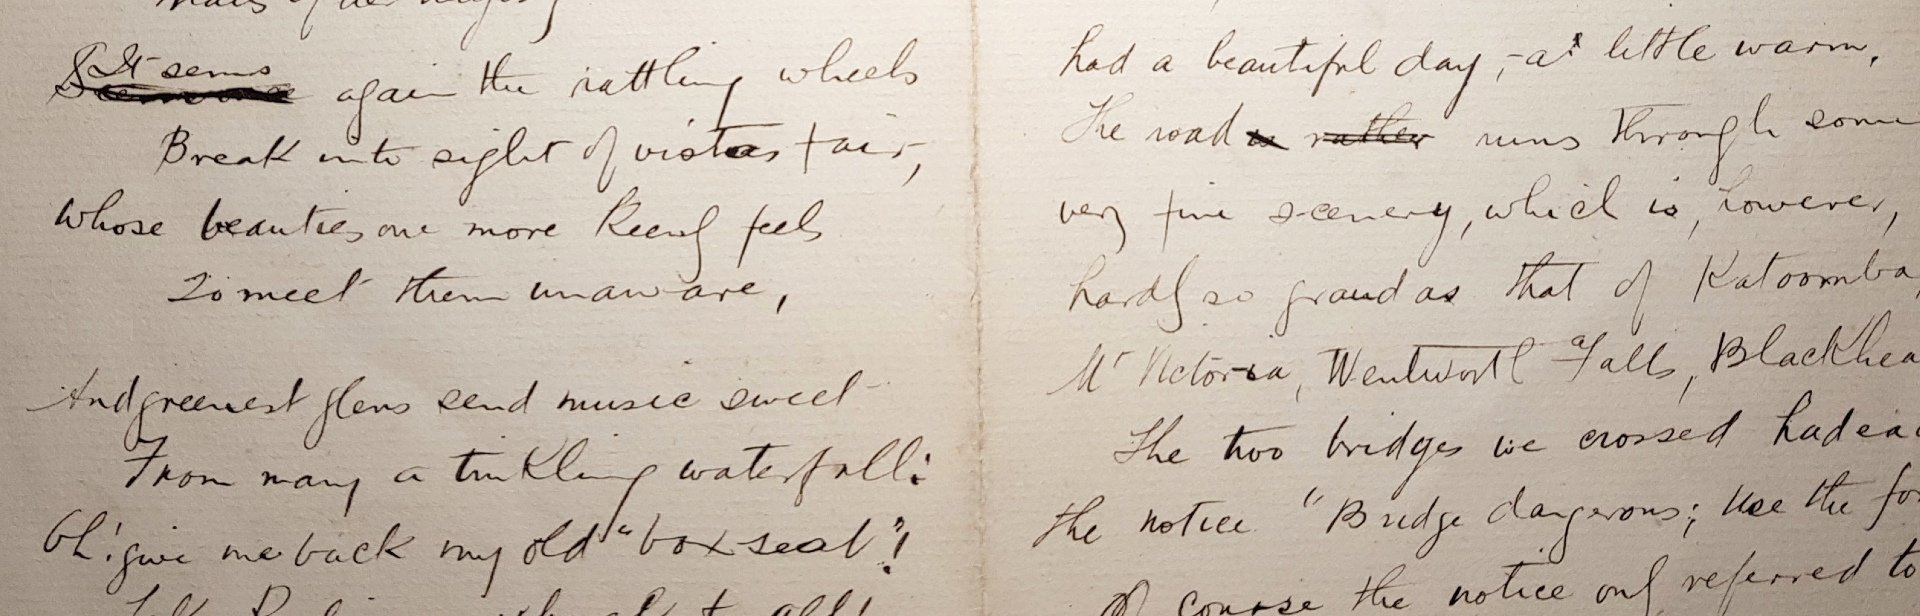 It seems again the rattling wheels
Break into sight of vistas fair,
Whose beauties one more keenly feels
To meet them unaware,
And greenest glens send music sweet
From many a tinkling waterfall:
Oh! give me back my old "box-seat"!
had a beautiful day, - a little warm.
The road is rather runs through some
very fine scenery, which is, however,
hardly so grand as that of Katoomba,
Mt Victoria, Wentworth Falls, Blackhea
The two bridges we crossed had eac
the notice "Bridge dangerous; Use the for
Of course the notice only referred to